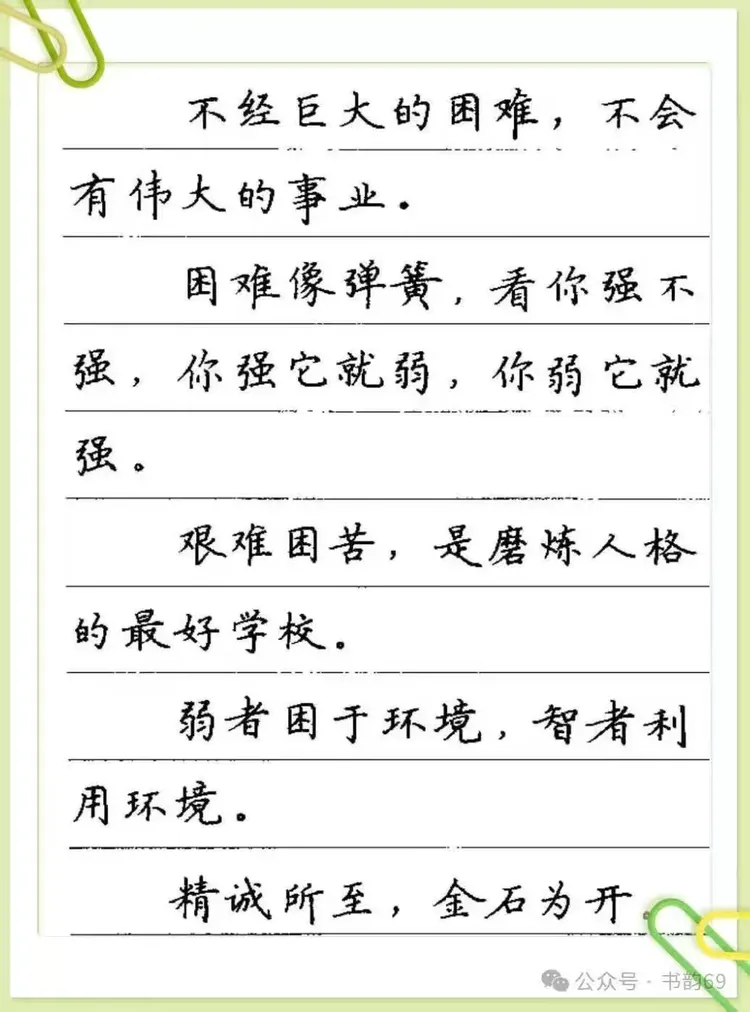 不经巨大的困难，不会
有伟大的事业.
困难像弹簧，看你强不
强，你强它就弱，你弱它就
强。
艰难困苦，是磨炼人格
的最好学校。
弱者困于环境，智者利
用环境。
精诚所至，金石为开。
公众号 · 书韵69